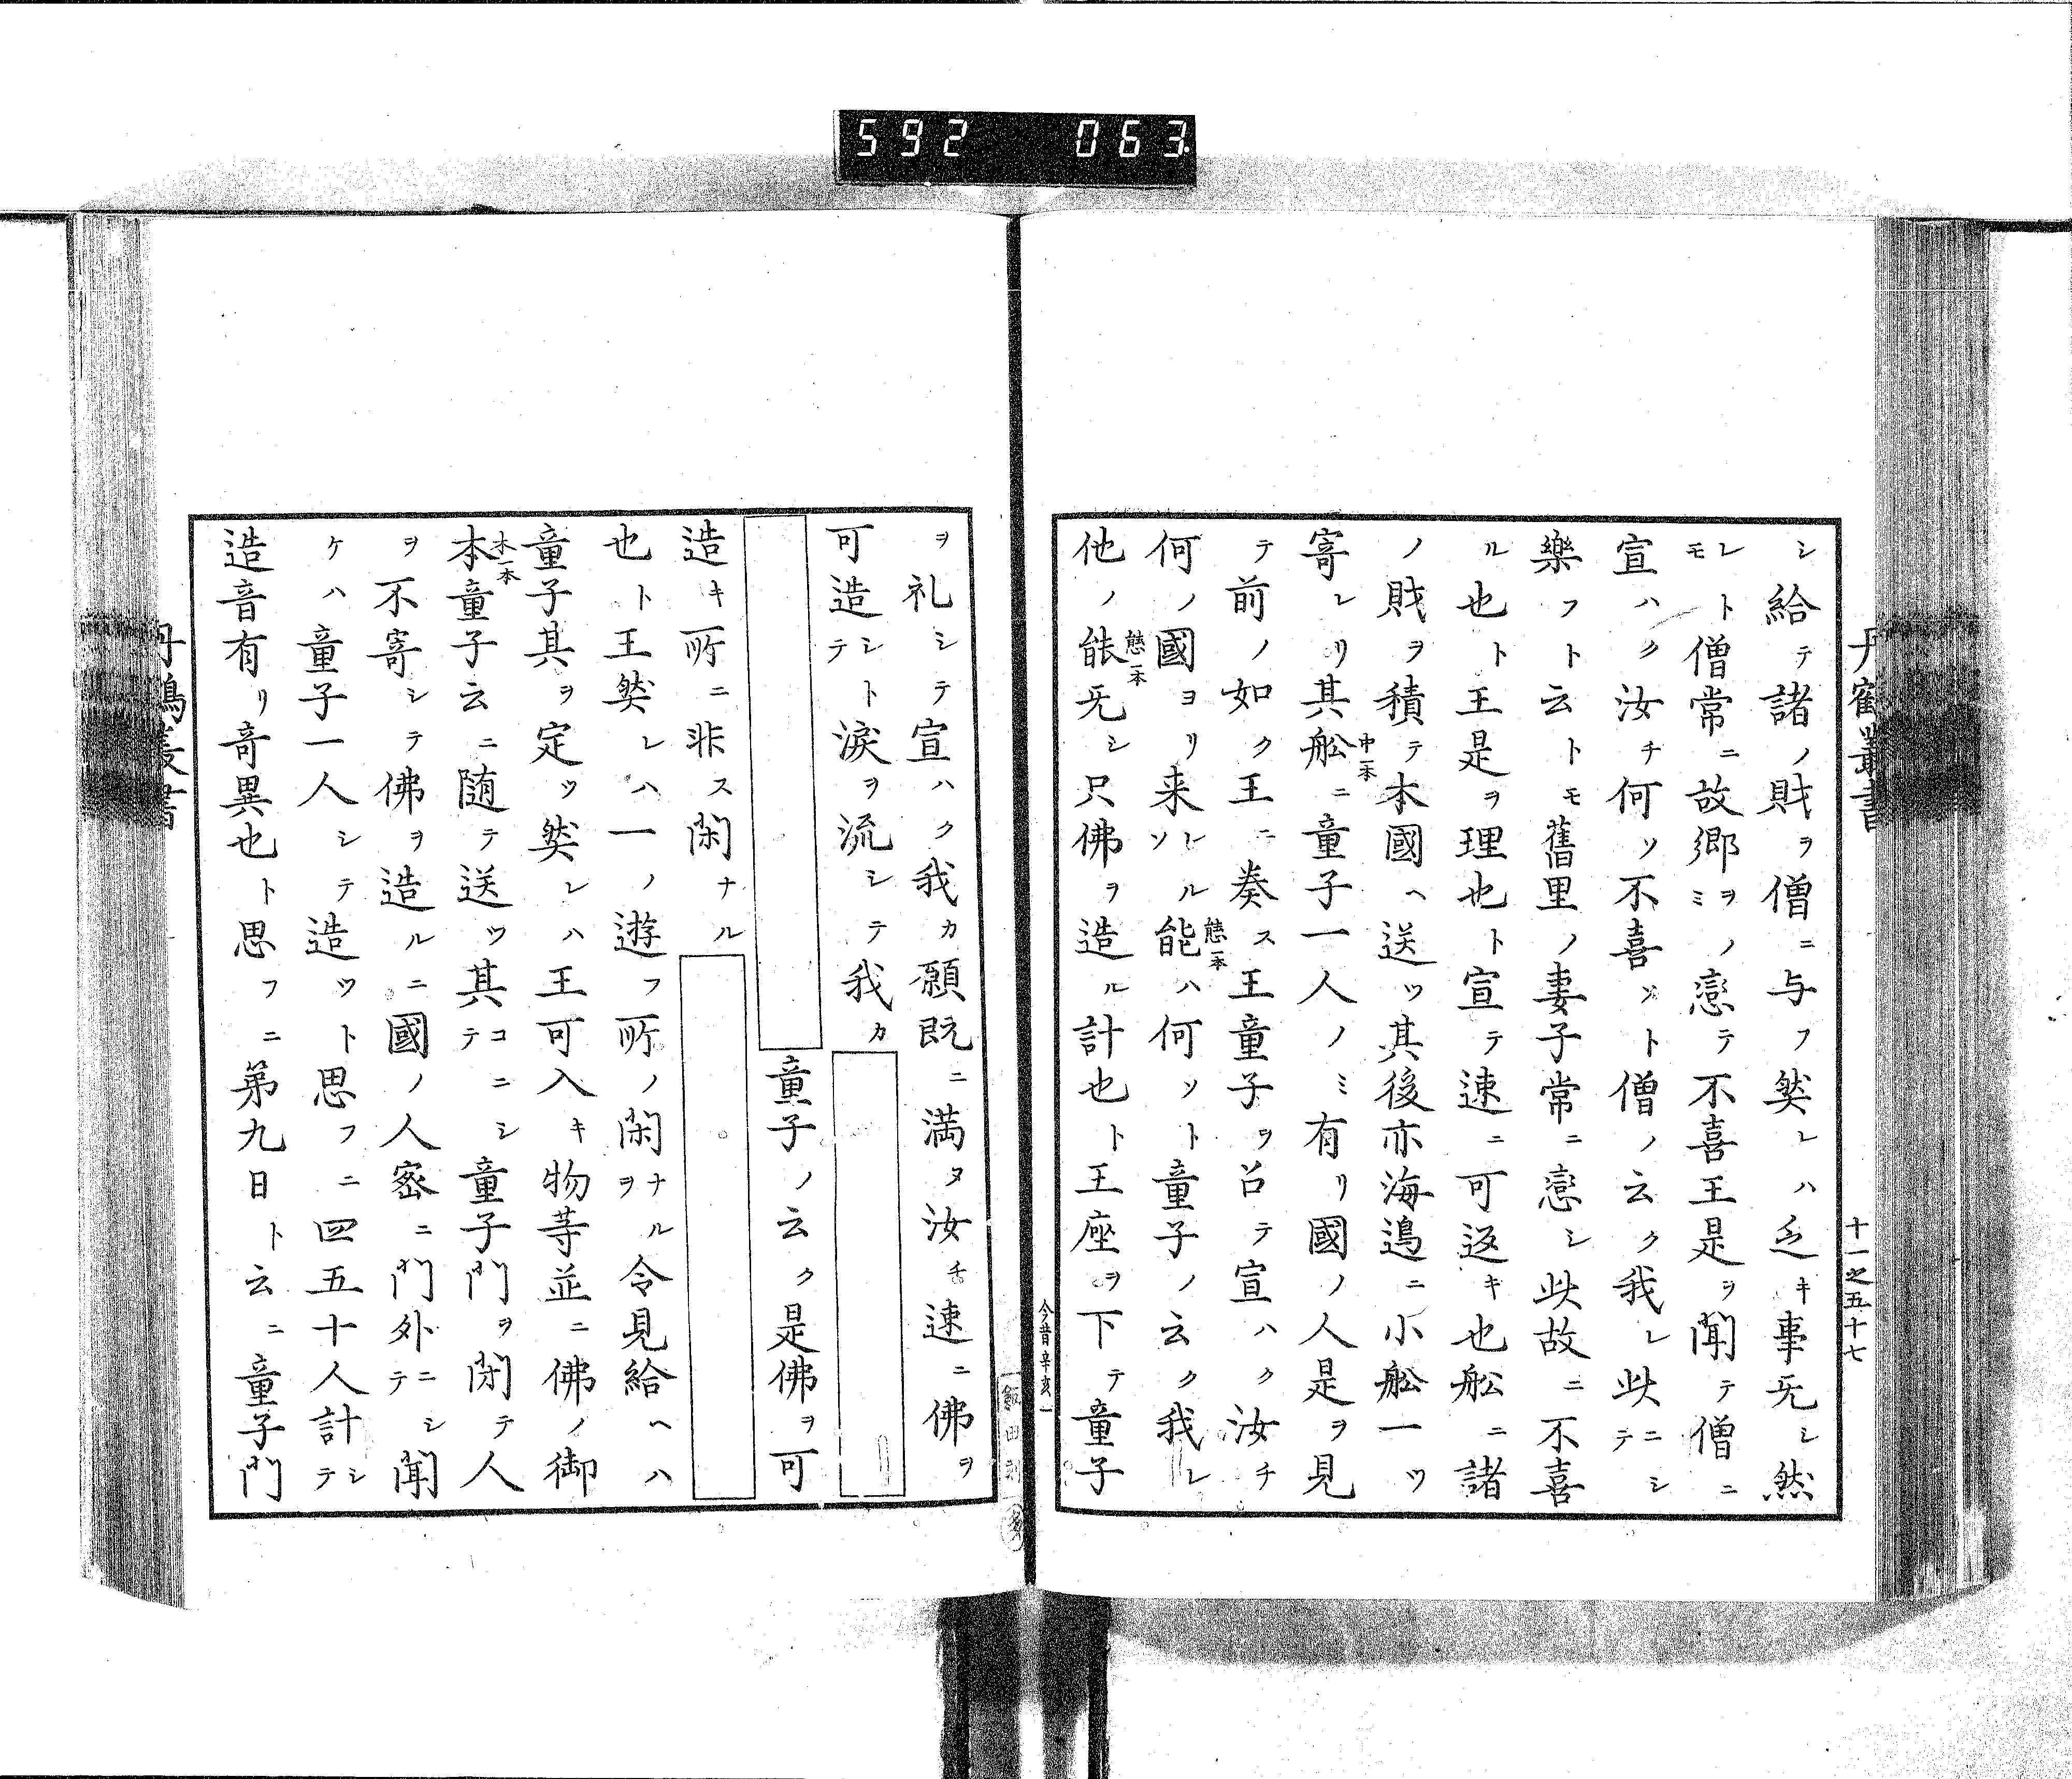 592 063
丹鶴叢書
十一之五十七
シ給テ諸ノ財ヲ僧ニ与フ然レハ乏キ事旡シ然
レトモ僧常ニ故郷ヲノミ戀テ不喜王是ヲ聞テ僧ニ
宣ハク汝チ何ソ不喜ソト僧ノ云ク我レ此ニシテ
樂フト云トモ舊里ノ妻子常ニ戀シ此故ニ不喜
ル也ト王是ヲ理也ト宣テ速ニ可返キ也舩ニ諸
ノ財ヲ積テ本國ヘ送ツ其後亦海邊ニ小舩一ツ
寄レリ其舩中一本ニ童子一人ノミ有リ國ノ人是ヲ見
テ前ノ如ク王ニ奏ス王童子ヲ召テ宣ハク汝チ
何ノ國ヨリ来レルソ能態一本ハ何ソト童子ノ云ク我レ
他ノ能態一本旡シ只佛ヲ造ル計也ト王座ヲ下テ童子
今昔辛亥一
飯田刻
ヲ礼シテ宣ハク我カ願既ニ満タ汝チ速ニ佛ヲ
可造シトテ涙ヲ流シテ我カ
童子ノ云ク是佛ヲ可
造キ所ニ非ス閑ナル
也ト王然レハ一ノ遊フ所ノ閑ナルヲ令見給ヘハ
童子其ヲ定ツ然レハ王可入キ物等並ニ佛ノ御
本木一本童子云ニ随テ送ツ其コニシテ童子門ヲ閉テ人
ヲ不寄シテ佛ヲ造ルニ國ノ人密ニ門外ニシテ聞
ケハ童子一人シテ造ツト思フニ四五十人計シテ
造音有リ奇異也ト思フニ弟九日ト云ニ童子門
丹鶴叢書